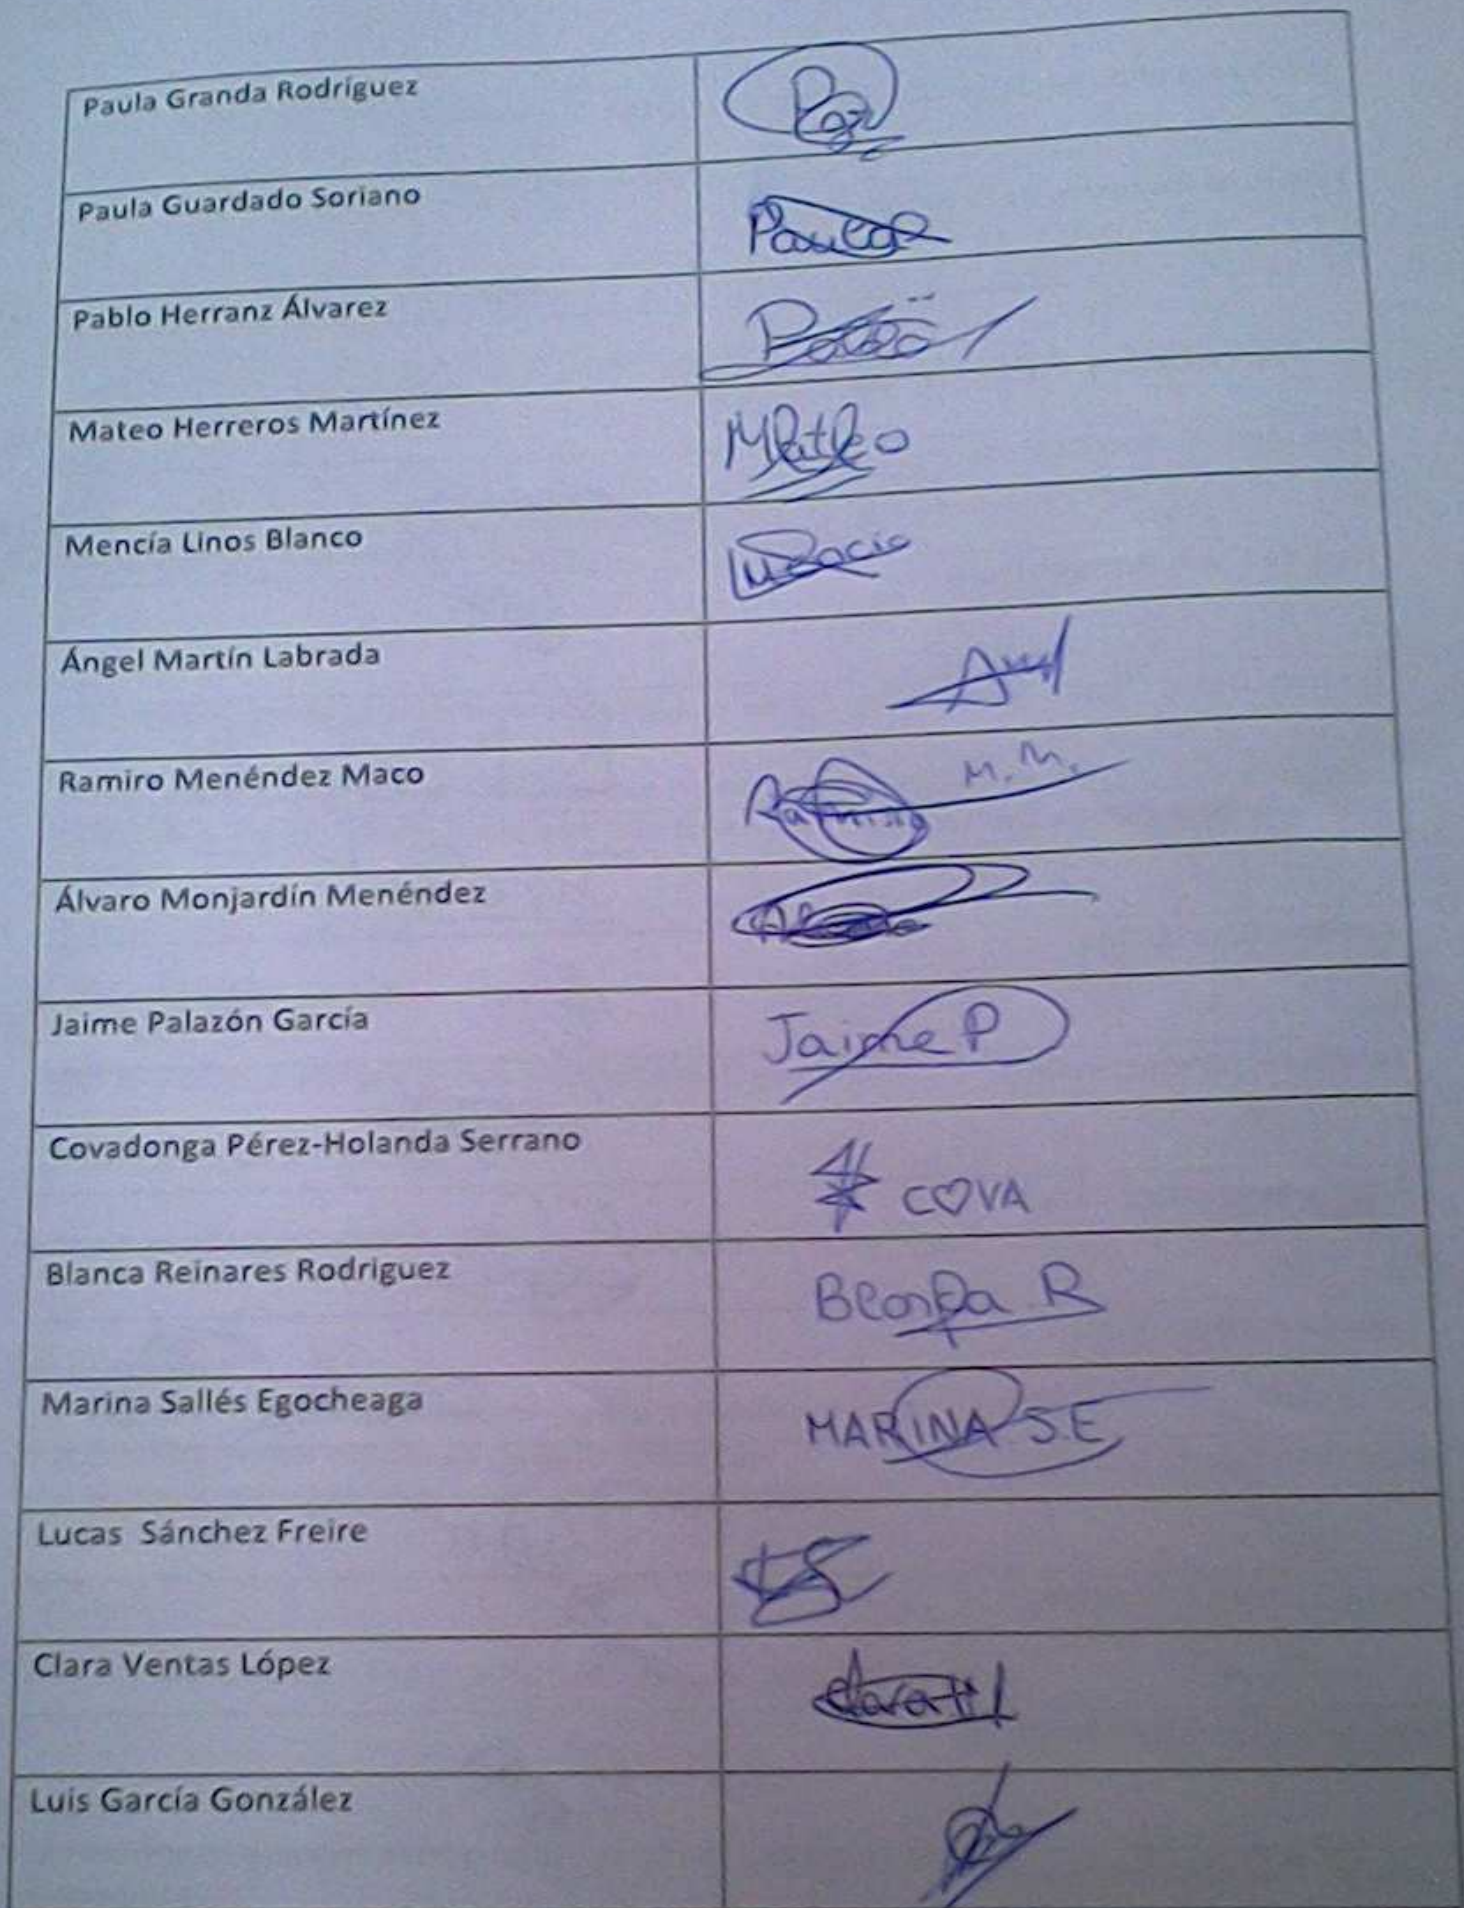 Paula Granda Rodríguez
Paula Guardado Soriano
Pablo Herranz Álvarez
Mateo Herreros Martínez
Mateo
Mencía Linos Blanco
Ángel Martín Labrada
Ramiro Menéndez Maco
Ramiro M.M.
Álvaro Monjardín Menéndez
Jaime Palazón García
Jaime P
Covadonga Pérez-Holanda Serrano
COVA
Blanca Reinares Rodriguez
Blanca R
Marina Sallés Egocheaga
MARINA S.E
Lucas Sánchez Freire
Clara Ventas López
Luis García González